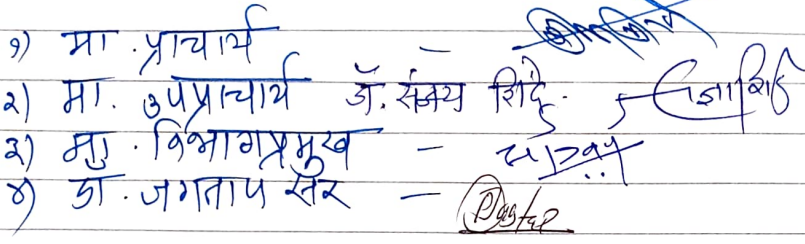 १) मा. प्राचार्य -
२) मा. उपप्राचार्य डॉ. संजय शिंदे.
३) मा. विभागप्रमुख -
४) डॉ. जगताप सर -